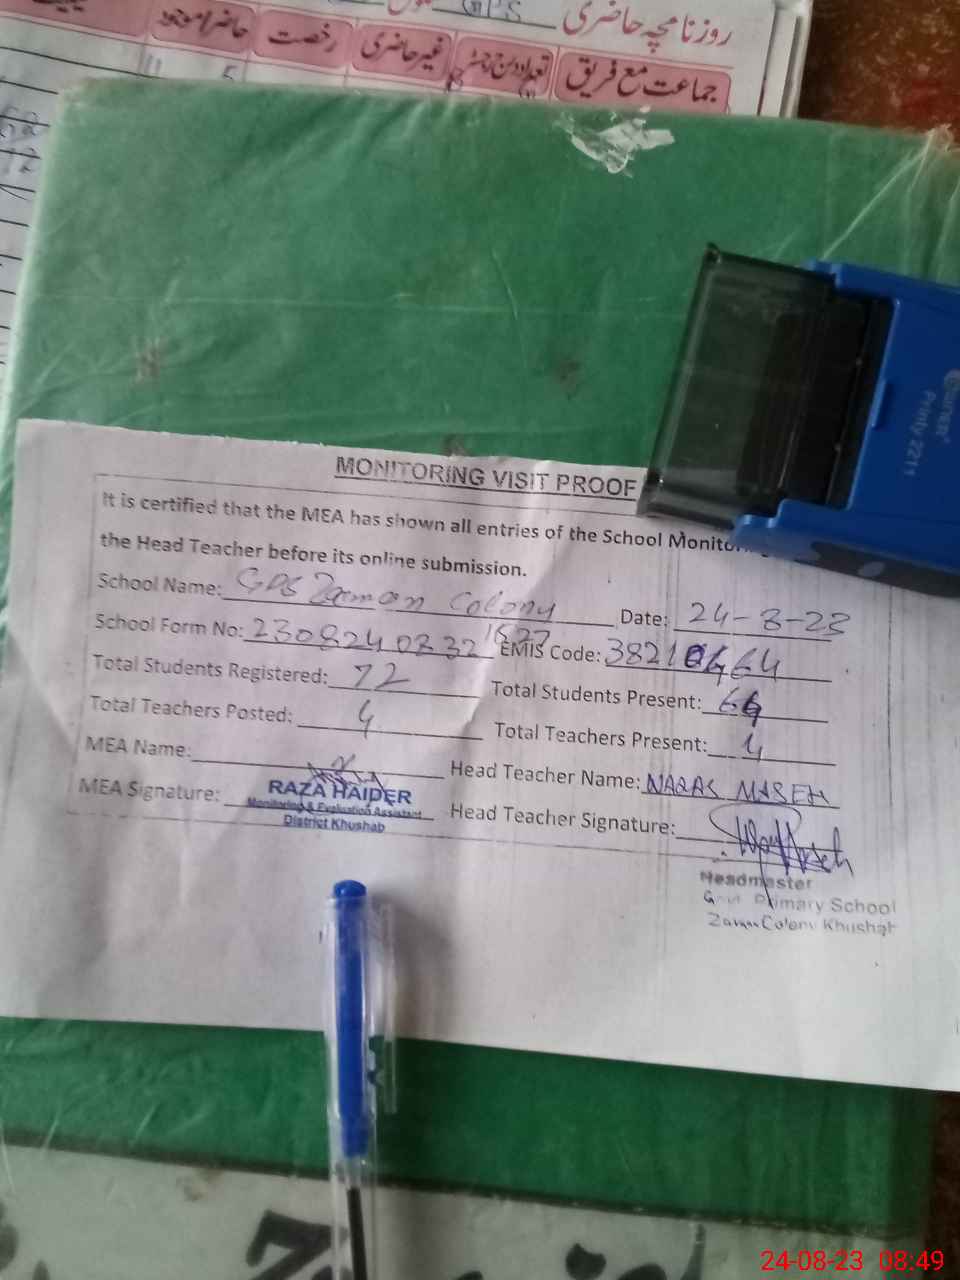 GPS
روزنامچہ حاضری
جماعت مع فریق تعداد درج رجسٹر غیر حاضری رخصت حاضر/موجود
5
12
Printy 2211
MONITORING VISIT PROOF
It is certified that the MEA has shown all entries of the School Monitoring
the Head Teacher before its online submission.
School Name: GPS Zaman Colony Date: 24-8-23
School Form No: 2308240832 1527 EMIS Code: 38210464
Total Students Registered: 72 Total Students Present: 64
Total Teachers Posted: 4 Total Teachers Present: 4
MEA Name: Head Teacher Name:
RAZA HAIDER
MEA Signature: Monitoring & Evaluation Assistant Head Teacher Signature:
District Khushab
Headmaster
Govt Primary School
Zaman Colony Khushab
24-08-23 08:49